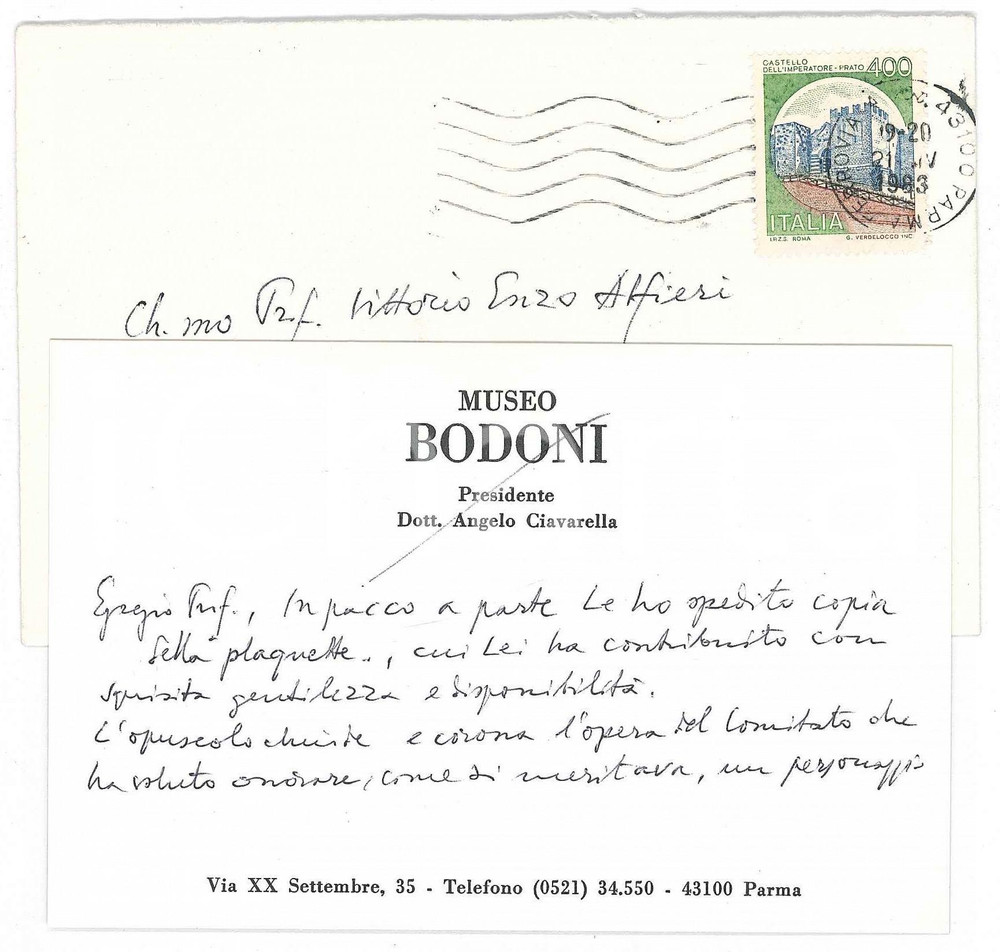 CASTELLO
DELL'IMPERATORE - PRATO 400
ITALIA
I.P.Z.S. ROMA G. VERDELOCCO INC.
FERROVIA 43100 PARMA
19-20
21 IV
1983
Ch.mo Prof. Vittorio Enzo Alfieri
MUSEO
BODONI
Presidente
Dott. Angelo Ciavarella
Egregio Prof., In pacco a parte Le ho spedito copia
della "plaquette", cui Lei ha contribuito con
squisita gentilezza e disponibilità.
L'opuscolo chiude e corona l'opera del Comitato che
ha voluto onorare, come si meritava, un personaggio
Via XX Settembre, 35 - Telefono (0521) 34.550 - 43100 Parma